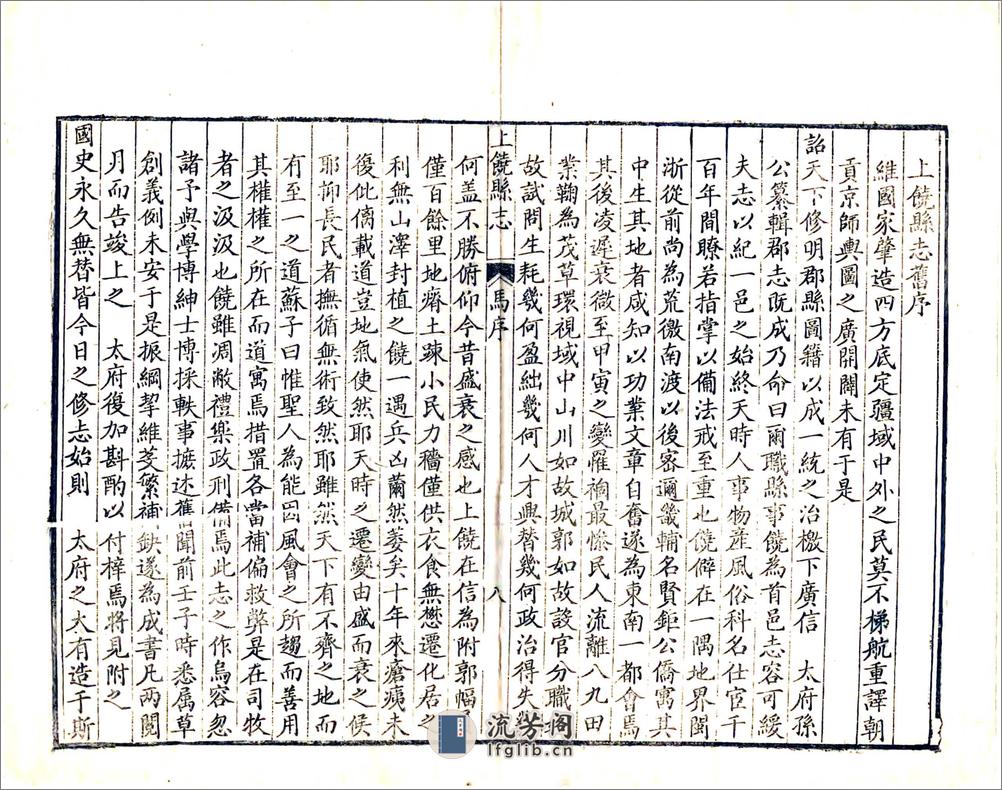 上饒縣志舊序
維國家肇造四方底定疆域中外之民莫不梯航重譯朝
貢京師輿圖之廣開闢未有于是
詔天下修明郡縣圖籍以成一統之治檄下廣信 太府孫
公纂輯郡志既成乃命曰爾職縣事饒為首邑志容可緩
夫志以紀一邑之始終天時人事物産風俗科名仕宦千
百年間瞭若指掌以備法戒至重也饒僻在一隅地界閩
浙從前尚為荒徼南渡以後密邇畿輔名賢鉅公僑寓其
中生其地者咸知以功業文章自奮遂為東南一都會焉
其後凌遲衰微至甲寅之變罹禍最慘民人流離八九田
業鞠為茂草環視域中山川如故城郭如故設官分職如
故試問生耗幾何盈絀幾何人才興替幾何政治得失幾
上饒縣志 馬序 八
何盖不勝俯仰今昔盛衰之感也上饒在信為附郭幅
僅百餘里地瘠土踈小民力穡僅供衣食無懋遷化居之
利無山澤封植之饒一遇兵凶薾然萎矣十年來瘡痍未
復仳㒧載道豈地氣使然耶天時之遷變由盛而衰之候
耶抑長民者撫循無術致然耶雖然天下有不齊之地而
有至一之道蘇子曰惟聖人為能因風會之所趨而善用
其權權之所在而道寓焉措置各當補偏救弊是在司牧
者之汲汲也饒雖凋敝禮樂政刑備焉此志之作烏容忽
諸予與學博紳士博採軼事摭述舊聞前壬子時悉屬草
創義例未安于是振綱挈維芟繁補缺遂為成書凡兩閱
月而告竣上之 太府復加斟酌以付梓焉將見附之
國史永久無替皆今日之修志始則 太府之大有造于斯
流芳阁
lfglib.cn